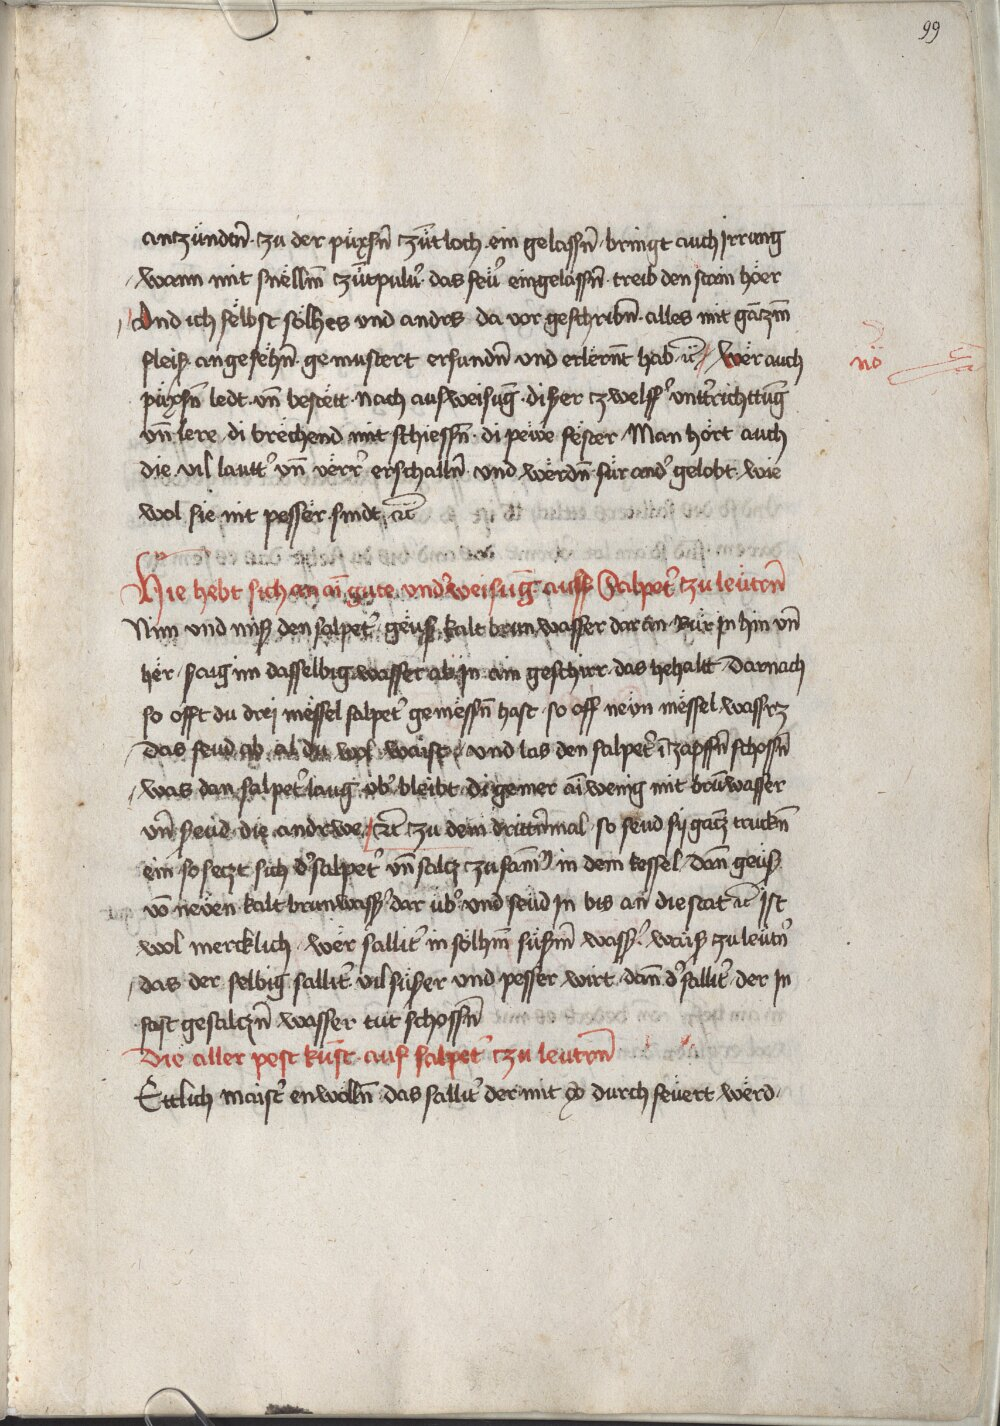 99
antzündtn̄ · zu der püxsn̄ zǖtloch · ein gelassn̄ · bringt auch Irrung
wann mit snëllm̄ zǖtpulu͛ · das feü͛ eingelassn̄ · treib den stain höer
And ich selbst sölhes vnd andrs da vor geschribn̄ · alles mit gātzm̄
fleis angesëhn̄ · gemustert erfundn̄ vnd erlërnt̄ hab · ec̄ Wër auch
püxsn̄ ledt · vn̄ bestëtt · nach ausweisuḡ · diser zwelff͛ vntt͛richttūg
vn̄ lere · di brëchend mit schiessn̄ · di pëwe fëster · Man hört auch
die · vil lautt͛ vn̄ vërr͛ erschalln̄ · vnd wërdn̄ · für and͛ gelobt · wie
wol sie nit pesser sindt · ec̄
nō
Hie hebt sich an ai͞ gute vnd͛weisuḡ · auff Salpet͛ zu leütrn̄
Nim vnd mis den salpet͛ · geüs kalt brun wasser dar an · Rür in hin vn̄
hër · saug im dasselbig wasser ab in ain geschirr · das behaltt · Darnach
so offt du drei mëssel salpet͛ gemëssn̄ hast · so off neün mëssel wassrz
das seud ab · al du wol waist · vnd las den salpet͛ ī zapffn̄ schossn̄
was dan salpet͛ laug üb͛ bleibt · di gemer ai͞ wenig mit brūwasser
vn̄ seud · die andrwe · ec̄ zu dem drittn̄mal · so seud sy gātz truckn̄
ein so seczt sich d͛ salpet͛ vn̄ salcz zusam̄ in dem kessel · Dan̄ geüs
vō neüen kalt brunwass͛ dar üb͛ vnd seüd in bis an die stat ec̄ Ist
wol mercklich · wër sallit͛ in sölhm̄ süsm̄ wass͛ · wais zu leütn͛
das der selbig sallit͛ vil süser vnd pesser wirt · dan̄ d͛ sallit͛ · der In
fast gesalczn̄ wasser tut schossn̄
Die aller pest kūst · auf salpet͛ zu leutrn̄
Ettlich maist͛ enwölln̄ · das sallit͛ der mit durch feuert werd ·